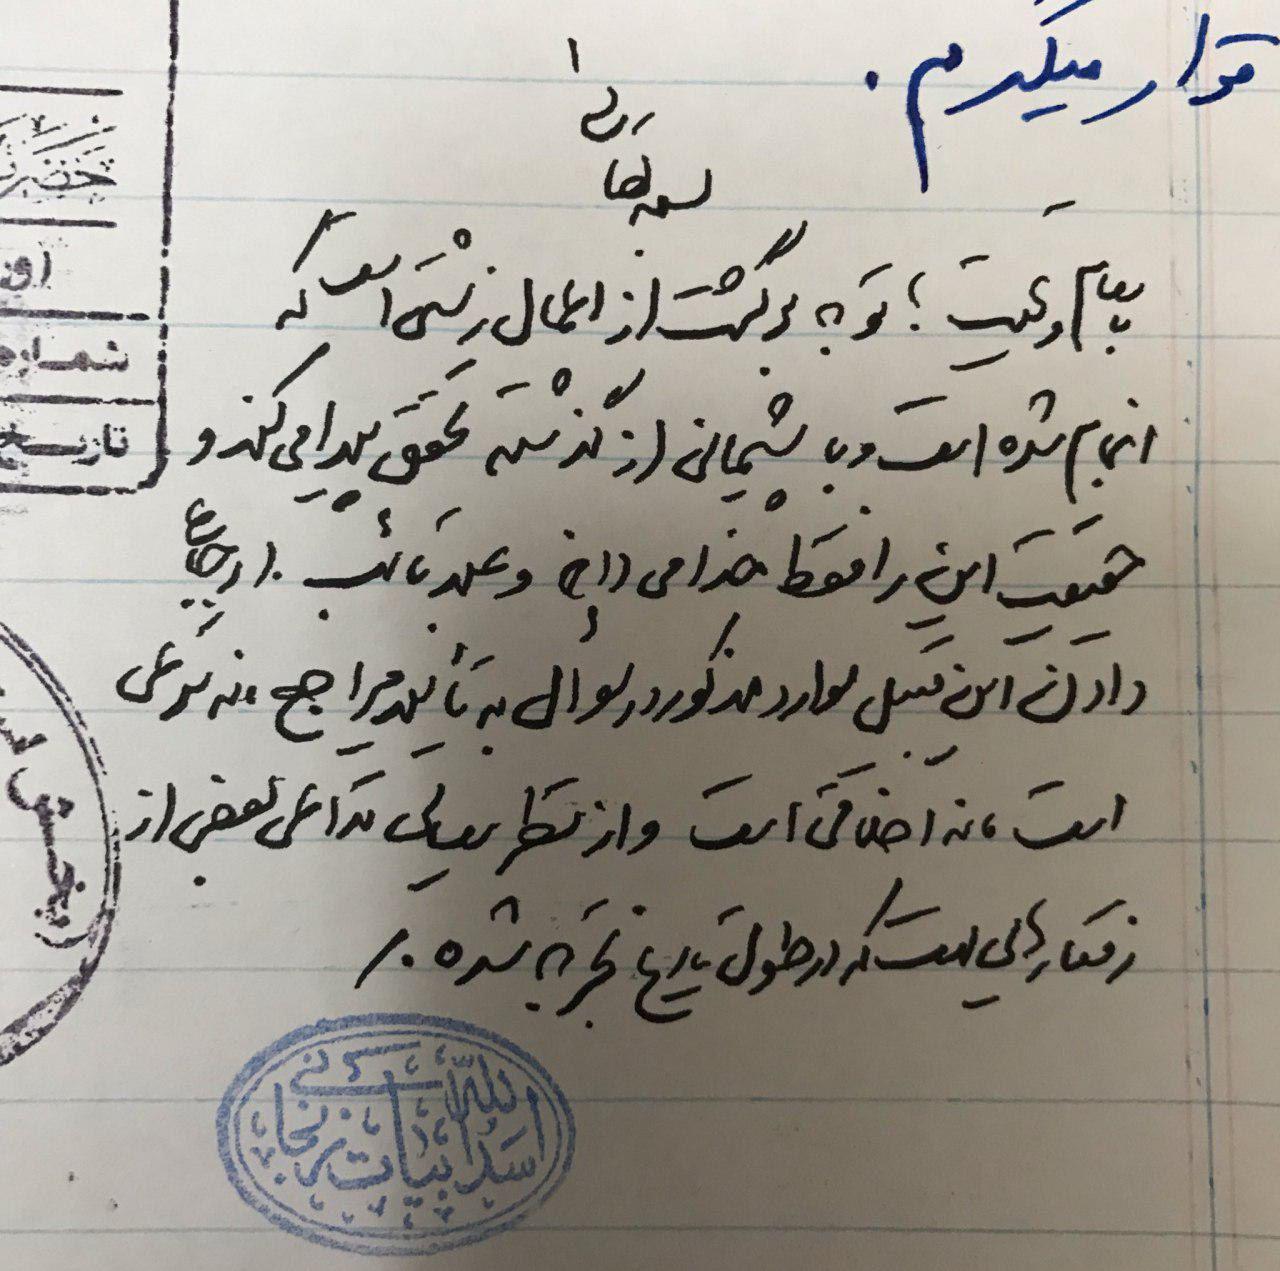 قرار میگیرم.
بسمه تعالی
با سلام و تحیت؛ توبه برگشت از اعمال زشتی است که
انجام شده است و با پشیمانی از گذشته تحقق پیدا می کند و
حقیقت این را فقط خدا می داند و عبد تائب. ارجاع
دادن این قبیل موارد مذکور در سوال به تأیید مراجع، نه شرعی
است، نه اخلاقی است و از نظر تداعی بعضی از
رفتار است که در طول تاریخ تجربه شده.
حضرت
شماره
تاریخ
اسدالله بیات زنجانی